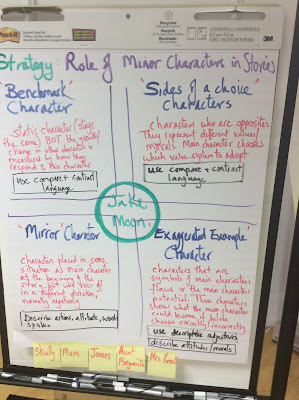 Post-it
Recycled
3M
Strategy: Role of Minor Characters in Stories
Benchmark
Character
static character (stays
the same) BUT the growth/
change in other characters is
measured by how they
respond to this character.
use compare + contrast
language.
"Sides of a choice"
Characters
characters who are opposites.
They represent different values/
morals. Main character chooses
which value system to adopt.
use compare + contrast
language.
Jake
Moon
"Mirror" Character
character placed in same
situation as main character
at the beginning of the
story, but will veer off
in a different direction,
normally negatively
Describe actions, attitude, words
spoken
"Exaggerated Example"
Character
characters that are
symbols of main characters
flaws or the main character
potential. These characters
show what the main character
could become if he/she
chooses correctly/incorrectly
use descriptive adjectives
describe attitudes/morals
Skully
Mom
James
Aunt
Marguerite
Mrs.